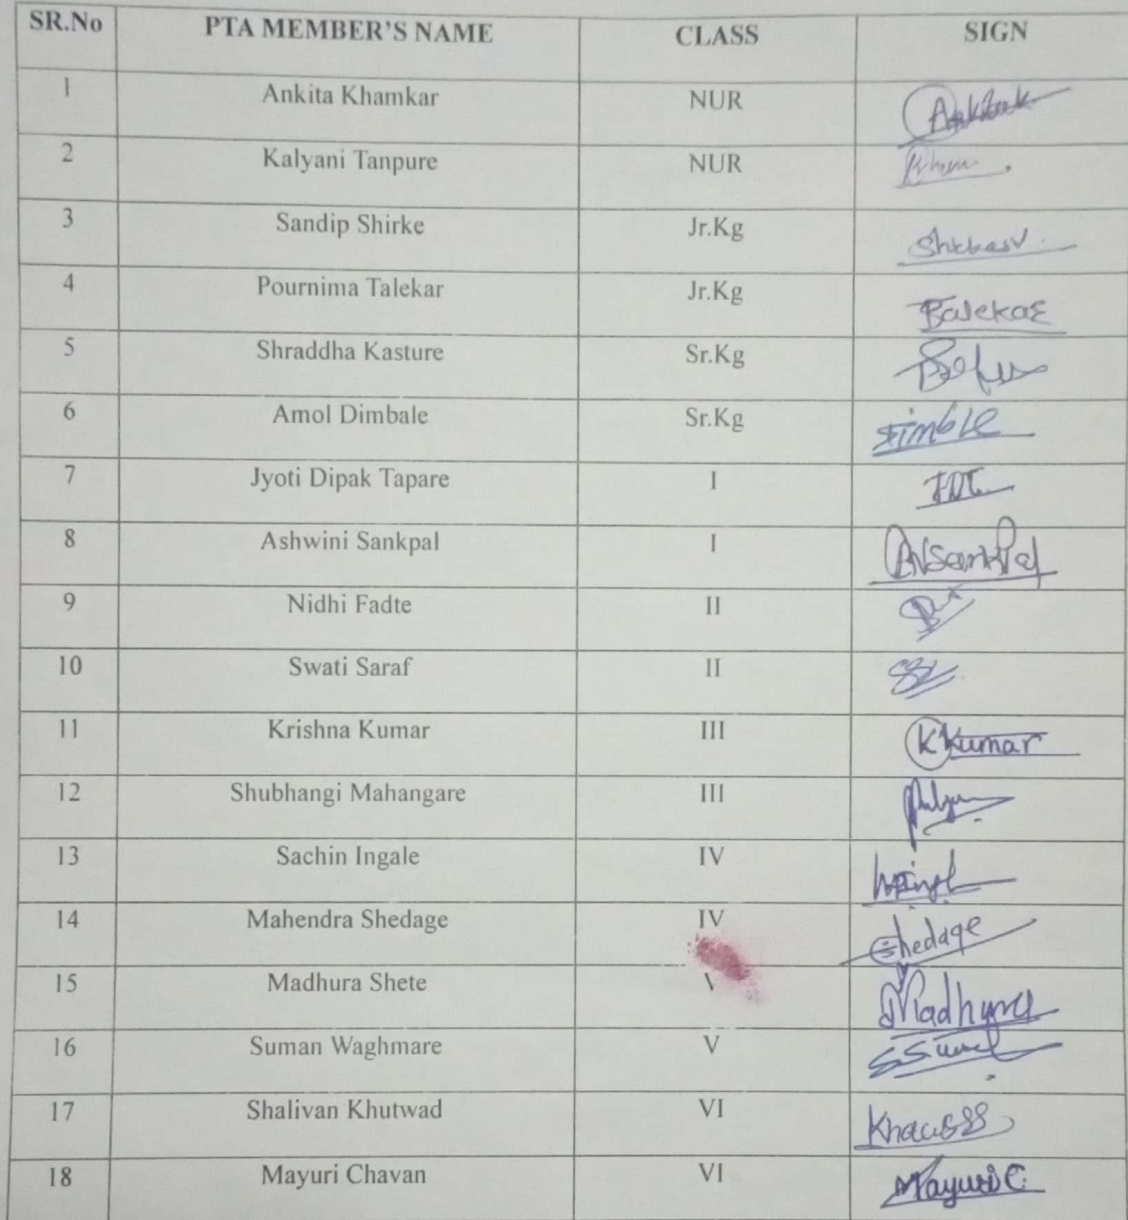 SR.No PTA MEMBER'S NAME CLASS SIGN
1 Ankita Khamkar NUR
2 Kalyani Tanpure NUR
3 Sandip Shirke Jr.Kg
4 Pournima Talekar Jr.Kg
5 Shraddha Kasture Sr.Kg
6 Amol Dimbale Sr.Kg
7 Jyoti Dipak Tapare I
8 Ashwini Sankpal I
9 Nidhi Fadte II
10 Swati Saraf II
11 Krishna Kumar III KKumar
12 Shubhangi Mahangare III
13 Sachin Ingale IV
14 Mahendra Shedage IV Shedage
15 Madhura Shete V Madhura
16 Suman Waghmare V
17 Shalivan Khutwad VI
18 Mayuri Chavan VI Mayuri C.